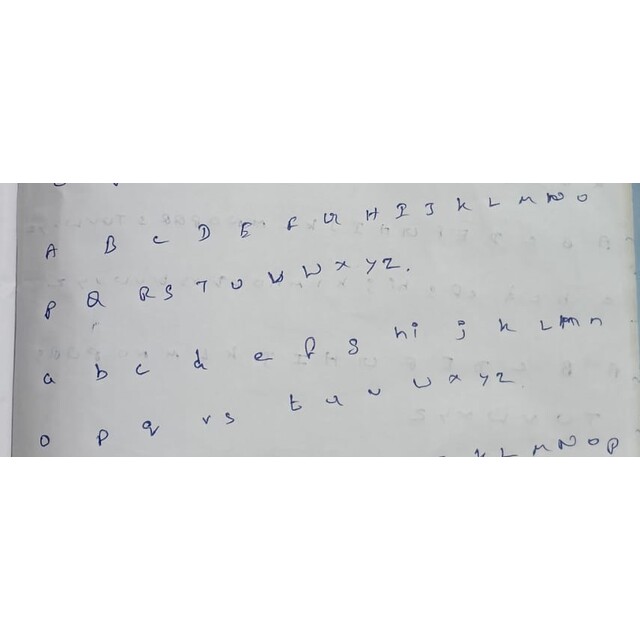 A B C D E F G H I J K L M N O
P Q R S T U V W X Y Z.
a b c d e f g h i j k l m n
o p q r s t u v w x y z
K L M N O P